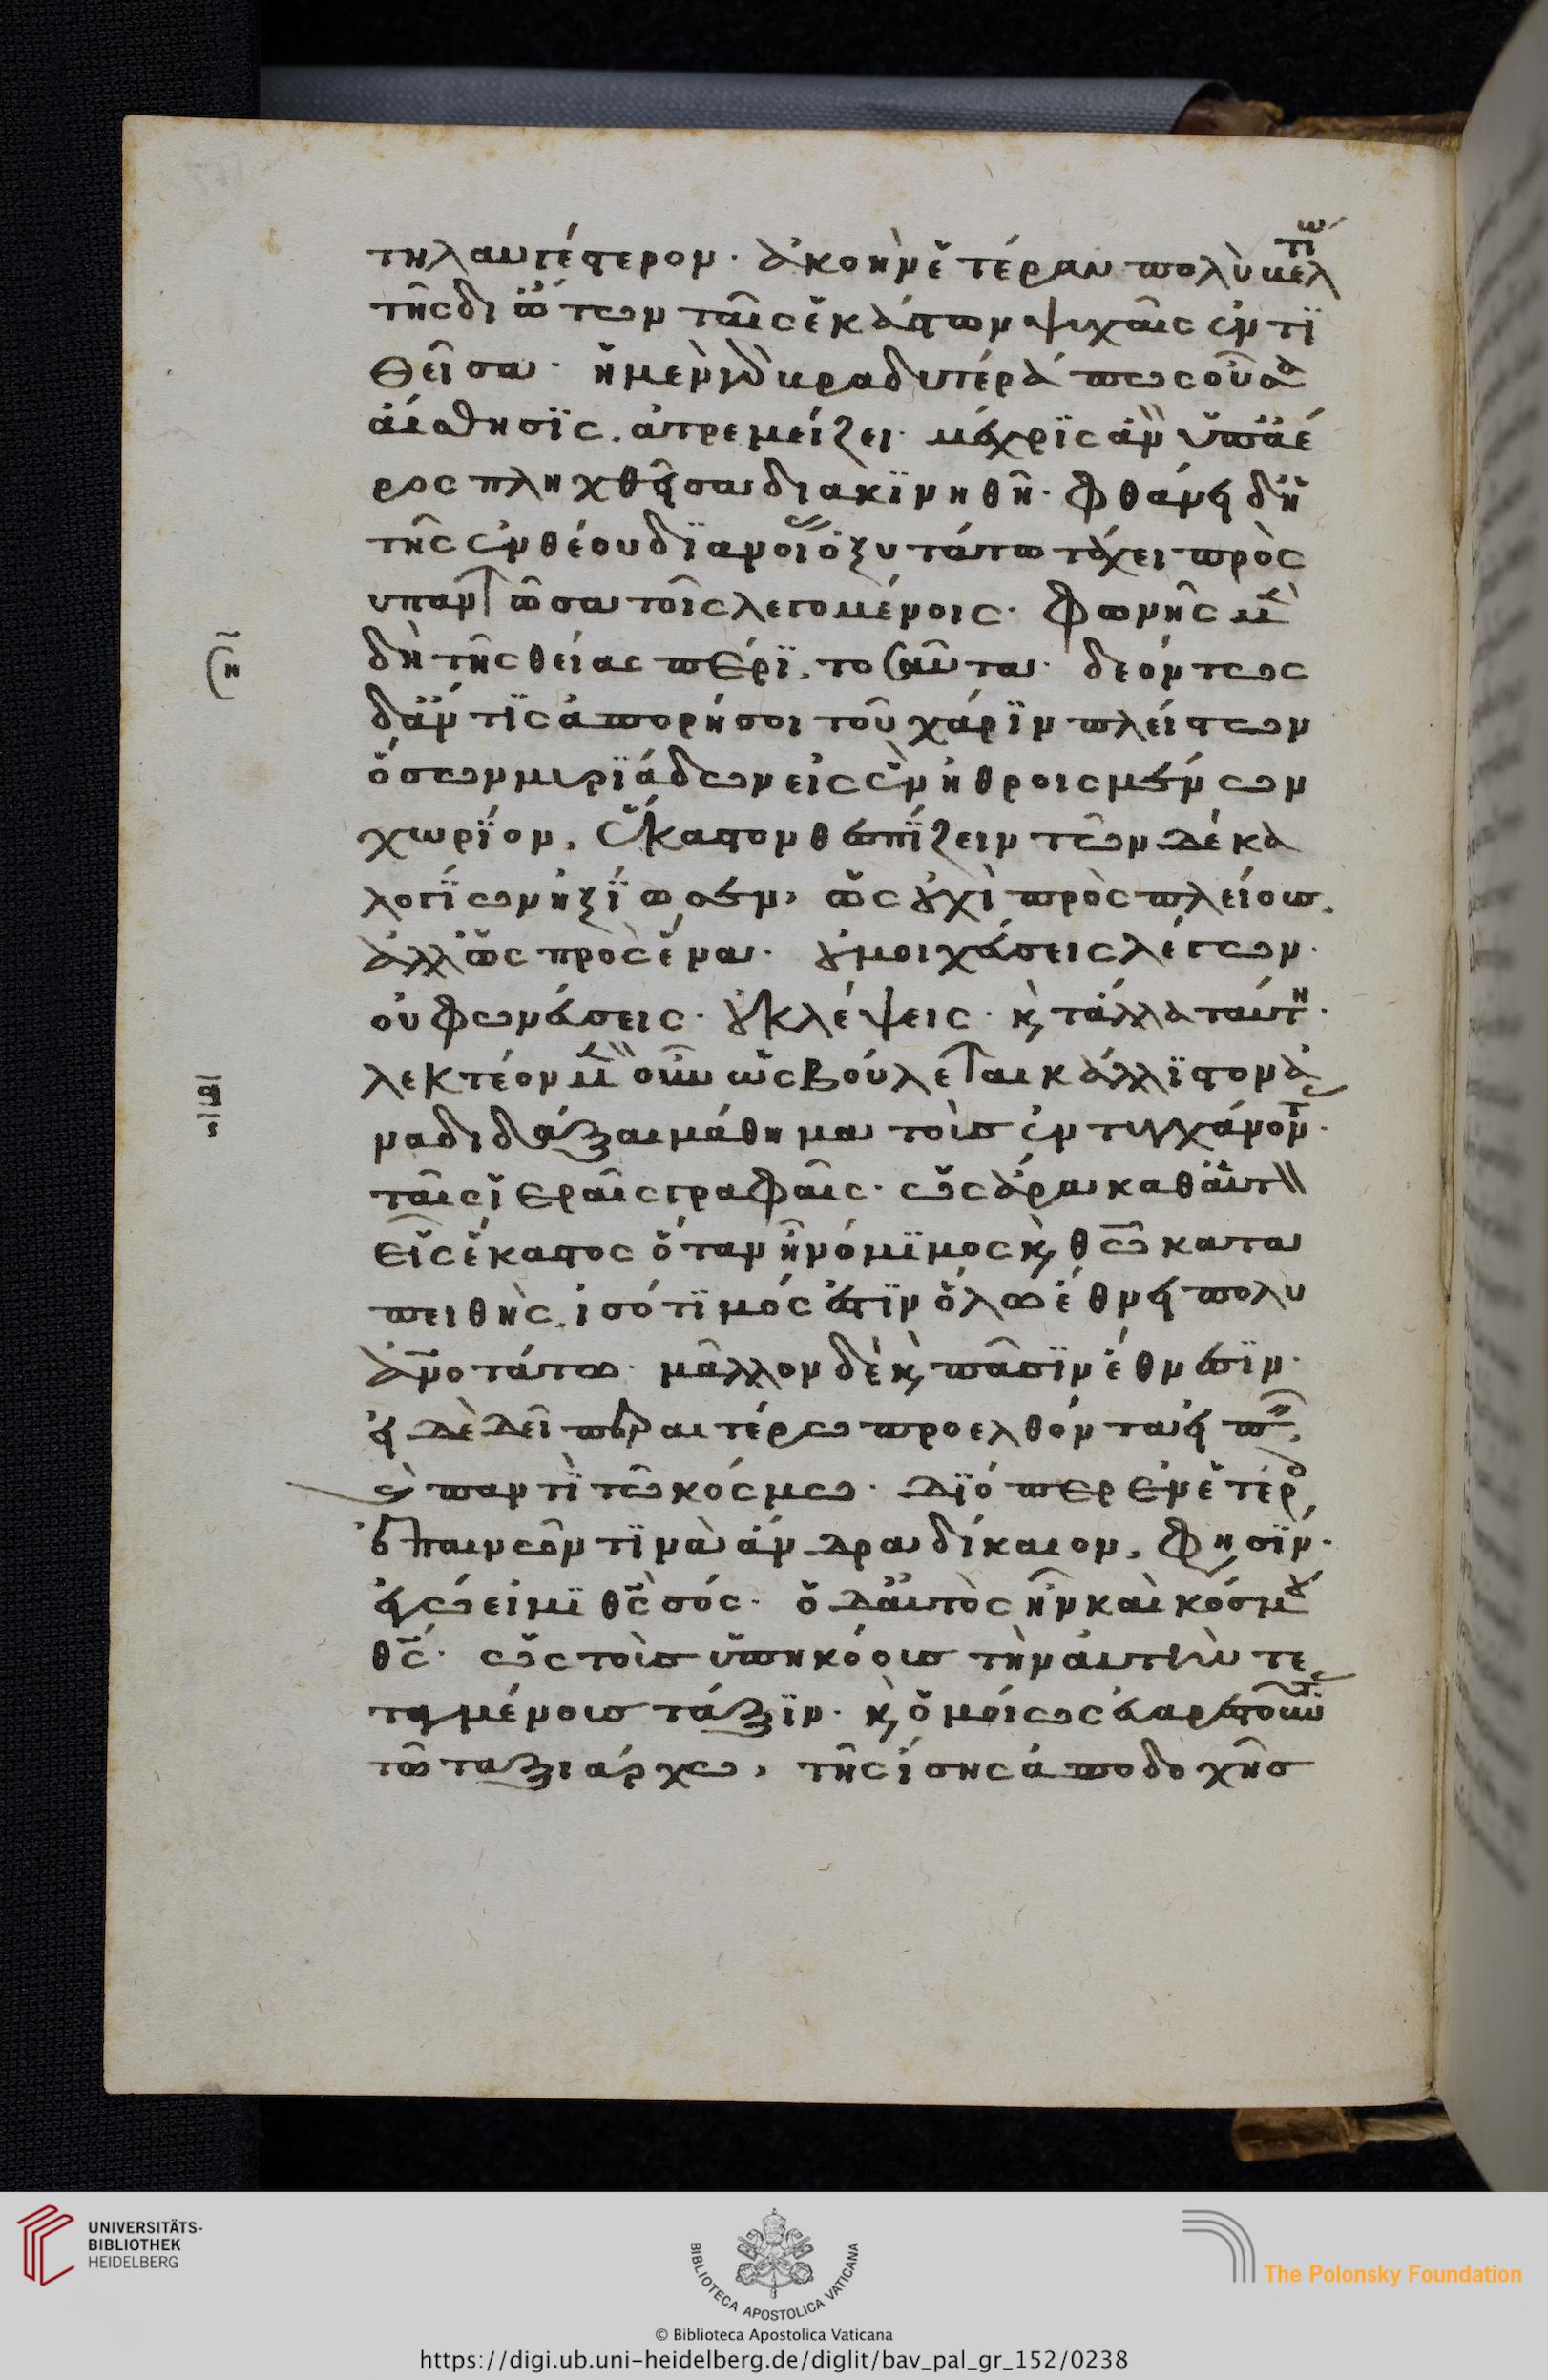 τηλαυγέστερον· ἀκοὴν ἑτέραν πολὺ βελτίω
τῆς δι ὤτων ταῖς ἑκάστων ψυχαῖς ἐντϊ
θεῖσα· ἡ μὲν γὰρ βραδυτέρά πως οὖσα
αἴσθησϊς. ἀτρεμείζει· μέχρϊς ἂν ὑπ ἀέ
ρος πληχθεῖσα διακϊνηθῆ· φθάνει δ ἡ
τῆς ἐνθέου δϊανοίας ὀξυτάτω τάχει πρὸς
υπαντῶσα τοῖς λεγομένοις· φωνῆς μὲν
δὴ τῆς θείας πέρϊ. τοσαῦτα· δεόντως
δ ἄν τϊς ἀπορήσοι τοῦ χάρϊν πλείστων
ὅσων μυρϊάδων εἰς ἓν ἠθροισμένων
χωρΐον, ἕκαστον θεσπΐζειν τῶν δέκα
λογΐων ἠξΐωσεν, ὡς οὐχὶ πρὸς πλείους,
ἀλλ ὡς πρὸς ἕνα· οὐ μοιχεύσεις λέγων·
οὐ φωνεύσεις· οὐ κλέψεις· κ τἄλλα ταύτη·
λεκτέον μὲν οὖν ὡς βούλεται κάλλϊστον ἀ
ναδιδάξαι μάθημα τοὺς ἐντυγχάνοντας·
ταῖς ἱεραῖς γραφαῖς· ὡς ἄρα καθ αὑτὸν
εἷς ἕκαστος ὅταν ἦ νόμϊμος κ θῶ κατα
πειθὴς, ἰσότϊμός ἐστϊν ὅλω ἔθνει πολυ
ἀνοτάτω· μᾶλλον δὲ κ πᾶσϊν ἔθνεσϊν·
εἰ δὲ δεῖ περαιτέρω προελθόντα εἰπεῖν,
ἐν παντϊ τῶ κόσμω· δϊόπερ ἐν ἑτέρ
ἐπαινῶν τϊνὰ ἄνδρα δίκαιον, φησΐν·
ἐγώ εἰμϊ θς σός· ὁ δ αὐτὸς ἦν καὶ κόσμου
θς· ὡς τοὺς ὑπηκόους τὴν αὐτὴν τε
ταγμένους τάξϊν· κ ὁμοίως εὐαρεστοῦντας
τῶ ταξιάρχω, τῆς ἴσης ἀποδοχῆς
UNIVERSITÄTS-
BIBLIOTHEK
HEIDELBERG
BIBLIOTECA APOSTOLICA VATICANA
The Polonsky Foundation
© Biblioteca Apostolica Vaticana
https://digi.ub.uni-heidelberg.de/diglit/bav_pal_gr_152/0238